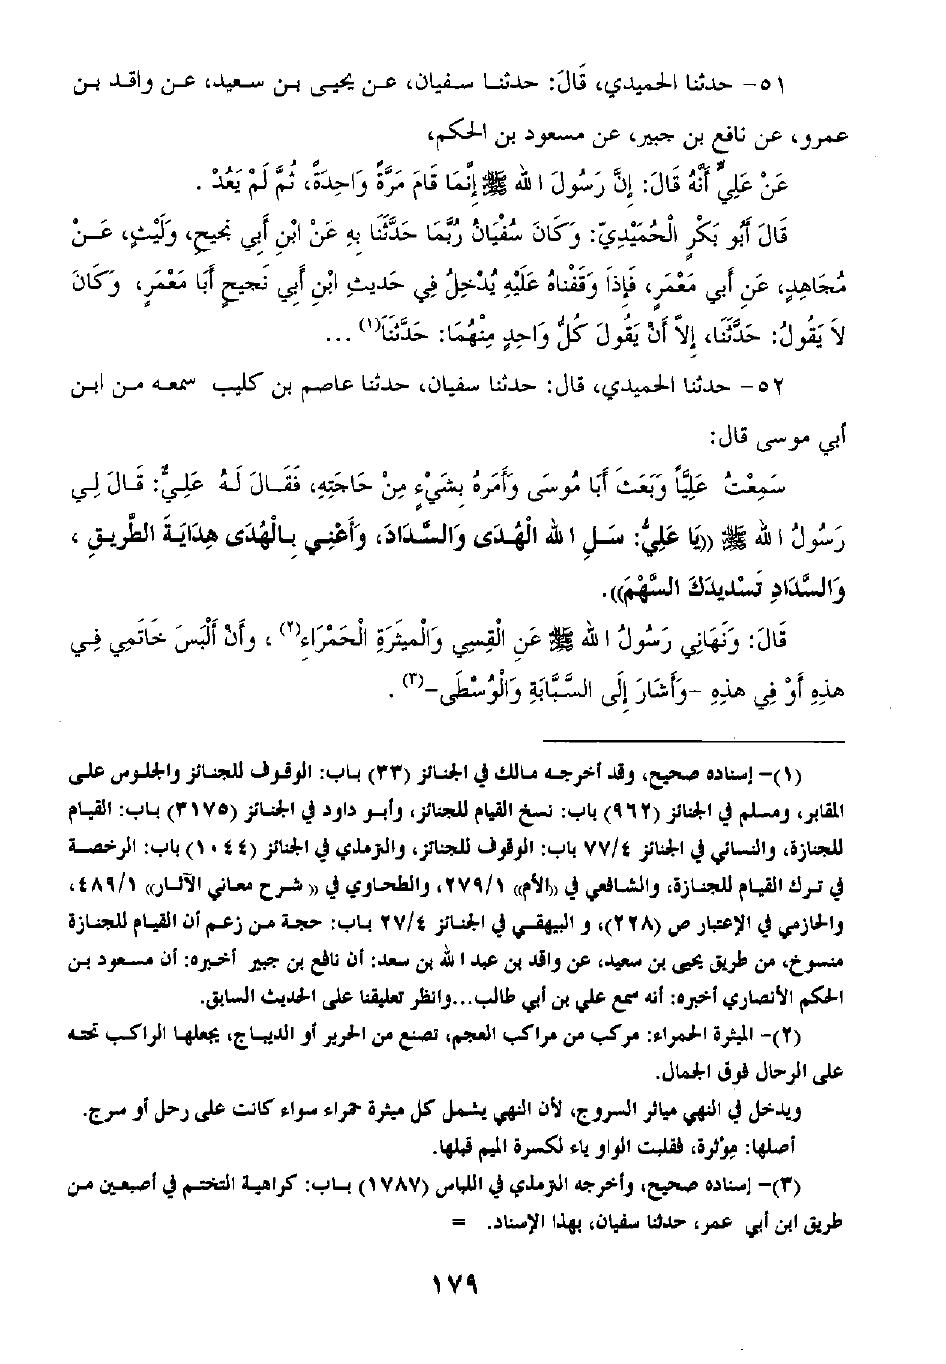 ٥١- حدثنا الحميدي، قَالَ: حدثنا سفيان، عن يحيى بن سعيد، عن واقد بن
عمرو، عن نافع بن جبير، عن مسعود بن الحكم،
عَنْ عَلِيٍّ أَنَّهُ قَالَ: إِنَّ رَسُولَ الله ﷺ إِنَّمَا قَامَ مَرَّةً وَاحِدَةً، ثُمَّ لَمْ يَعُدْ .
قَالَ أَبُو بَكْرٍ الْحُمَيْدِيّ: وَكَانَ سُفْيَانُ رُبَّمَا حَدَّثَنَا بِهِ عَنْ ابْنِ أَبِي نَجِيحٍ، وَلَيْثٍ، عَنْ
مُجَاهِدٍ، عَنِ أَبِي مَعْمَرٍ، فَإِذَا وَقَفْنَاهُ عَلَيْهِ يُدْخِلُ فِي حَدِيثِ ابْنِ أَبِي نَجِيحٍ أَبَا مَعْمَرٍ، وَكَانَ
لاَ يَقُولُ: حَدَّثَنَا، إِلاَّ أَنْ يَقُولَ كُلُّ وَاحِدٍ مِنْهُمَا: حَدَّثَنَا(١) ...
٥٢- حدثنا الحميدي، قال: حدثنا سفيان، حدثنا عاصم بن كليب سمعه من ابن
أبي موسى قال:
سَمِعْتُ عَلِيّاً وَبَعَثَ أَبَا مُوسَى وَأَمَرَهُ بِشَيْءٍ مِنْ حَاجَتِهِ، فَقَالَ لَهُ عَلِيٌّ: قَالَ لِي
رَسُولُ الله ﷺ ((يَا عَلِيُّ: سَلِ الله الْهُدَى وَالسَّدَادَ، وَأَعْنِي بِالْهُدَى هِدَايَةَ الطَّرِيقِ ،
وَالسَّدَادِ تَسْدِيدَكَ السَّهْمَ)).
قَالَ: وَنَهَانِي رَسُولُ الله ﷺ عَنِ الْقِسِي وَالْمِيثَرَةِ الْحَمْرَاءِ(٢) ، وَأَنْ أَلْبَسَ خَاتَمِي فِي
هذِهِ أَوْ فِي هذِهِ -وَأَشَارَ إِلَى السَّبَّابَةِ وَالْوُسْطَى-(٣) .
(١)- إسناده صحيح، وقد أخرجه مالك في الجنائز (٣٣) باب: الوقوف للجنائز والجلوس على
المقابر، ومسلم في الجنائز (٩٦٢) باب: نسخ القيام للجنائز، وأبو داود في الجنائز (٣١٧٥) باب: القيام
للجنازة، والنسائي في الجنائز ٧٧/٤ باب: الوقوف للجنائز، والترمذي في الجنائز (١٠٤٤) باب: الرخصة
في ترك القيام للجنازة، والشافعي في ((الأم)) ٢٧٩/١، والطحاوي في (( شرح معاني الآثار)) ٤٨٩/١،
والحازمي في الإعتبار ص (٢٢٨)، و البيهقي في الجنائز ٢٧/٤ باب: حجة من زعم أن القيام للجنازة
منسوخ، من طريق يحيى بن سعيد، عن واقد بن عبد الله بن سعد: أن نافع بن جبير أخبره: أن مسعود بن
الحكم الأنصاري أخبره: أنه سمع علي بن أبي طالب...وانظر تعليقنا على الحديث السابق.
(٢)- الميثرة الحمراء: مركب من مراكب العجم، تصنع من الحرير أو الديباج، يجعلها الراكب تحته
على الرحال فوق الجمال.
ويدخل في النهي مياثر السروج، لأن النهي يشمل كل ميثرة حمراء سواء كانت على رحل أو سرج.
أصلها: مِوْثرة، فقلبت الواو ياء لكسرة الميم قبلها.
(٣)- إسناده صحيح، وأخرجه الترمذي في اللباس (١٧٨٧) باب: كراهية التختم في أصبعين من
طريق ابن أبي عمر، حدثنا سفيان، بهذا الإسناد. =
١٧٩